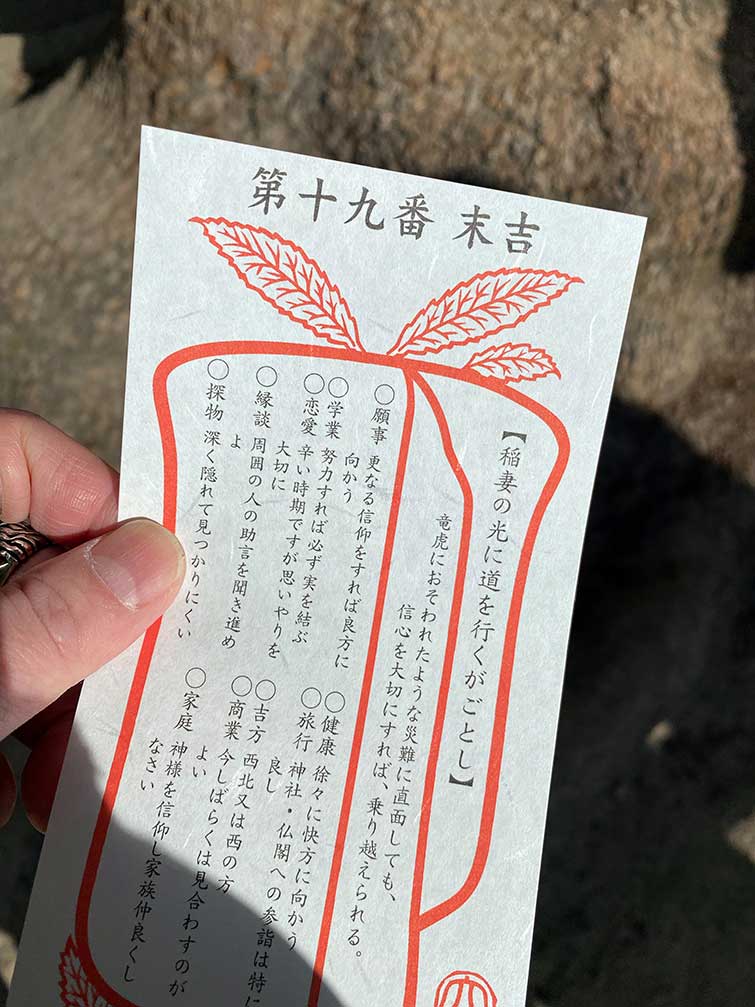 第十九番 末吉
【稲妻の光に道を行くがごとし】
竜虎におそわれたような災難に直面しても、
信心を大切にすれば、乗り越えられる。
○願事 更なる信仰をすれば良方に
向かう
○学業 努力すれば必ず実を結ぶ
○恋愛 辛い時期ですが思いやりを
大切に
○縁談 周囲の人の助言を聞き進め
よ
○探物 深く隠れて見つかりにくい
○健康 徐々に快方に向かう
○旅行 神社・仏閣への参詣は特に
良し
○吉方 西北又は西の方
○商業 今しばらくは見合わすのが
よい
○家庭 神様を信仰し家族仲良くし
なさい